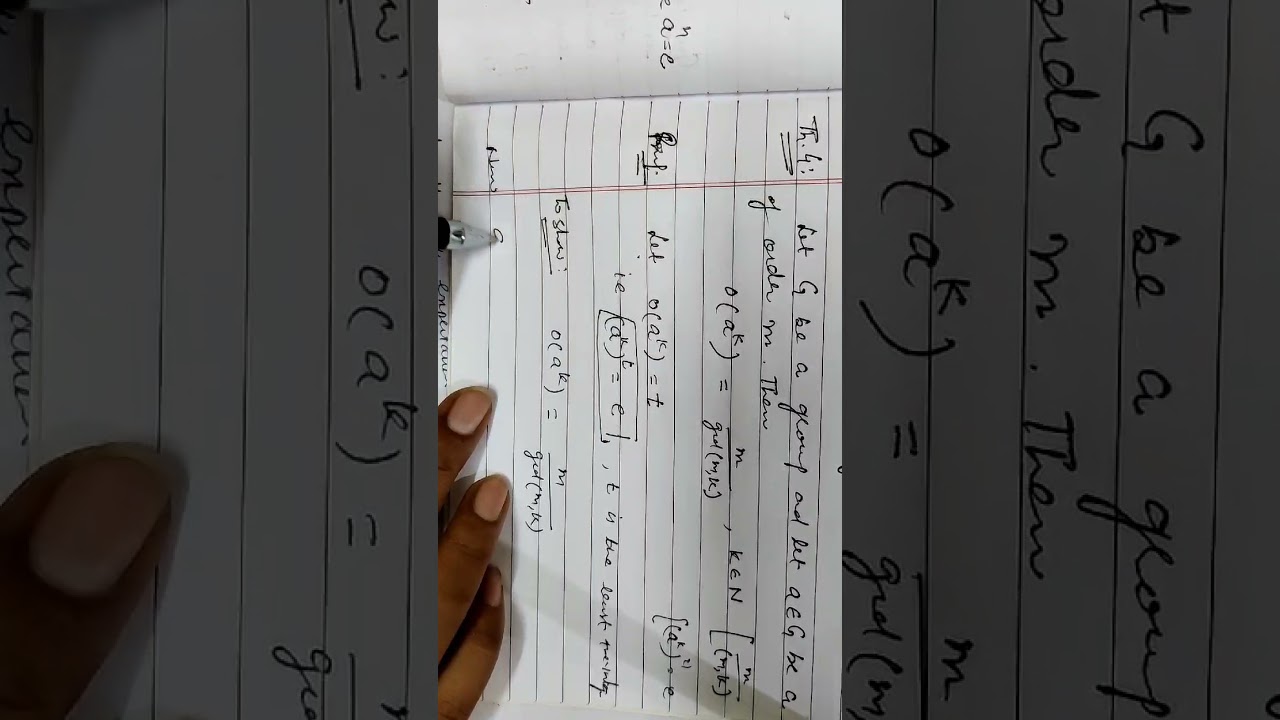 e aⁿ=e
Th.4: Let G be a group and let a∈G be a
of order m. Then
o(aᵏ) = m/gcd(m,k), k∈N [m/(m,k)
Proof: Let o(aᵏ) = t
i.e (aᵏ)ᵗ = e, t is the least +ve integ
To show: o(aᵏ) = m/gcd(m,k)
Now a